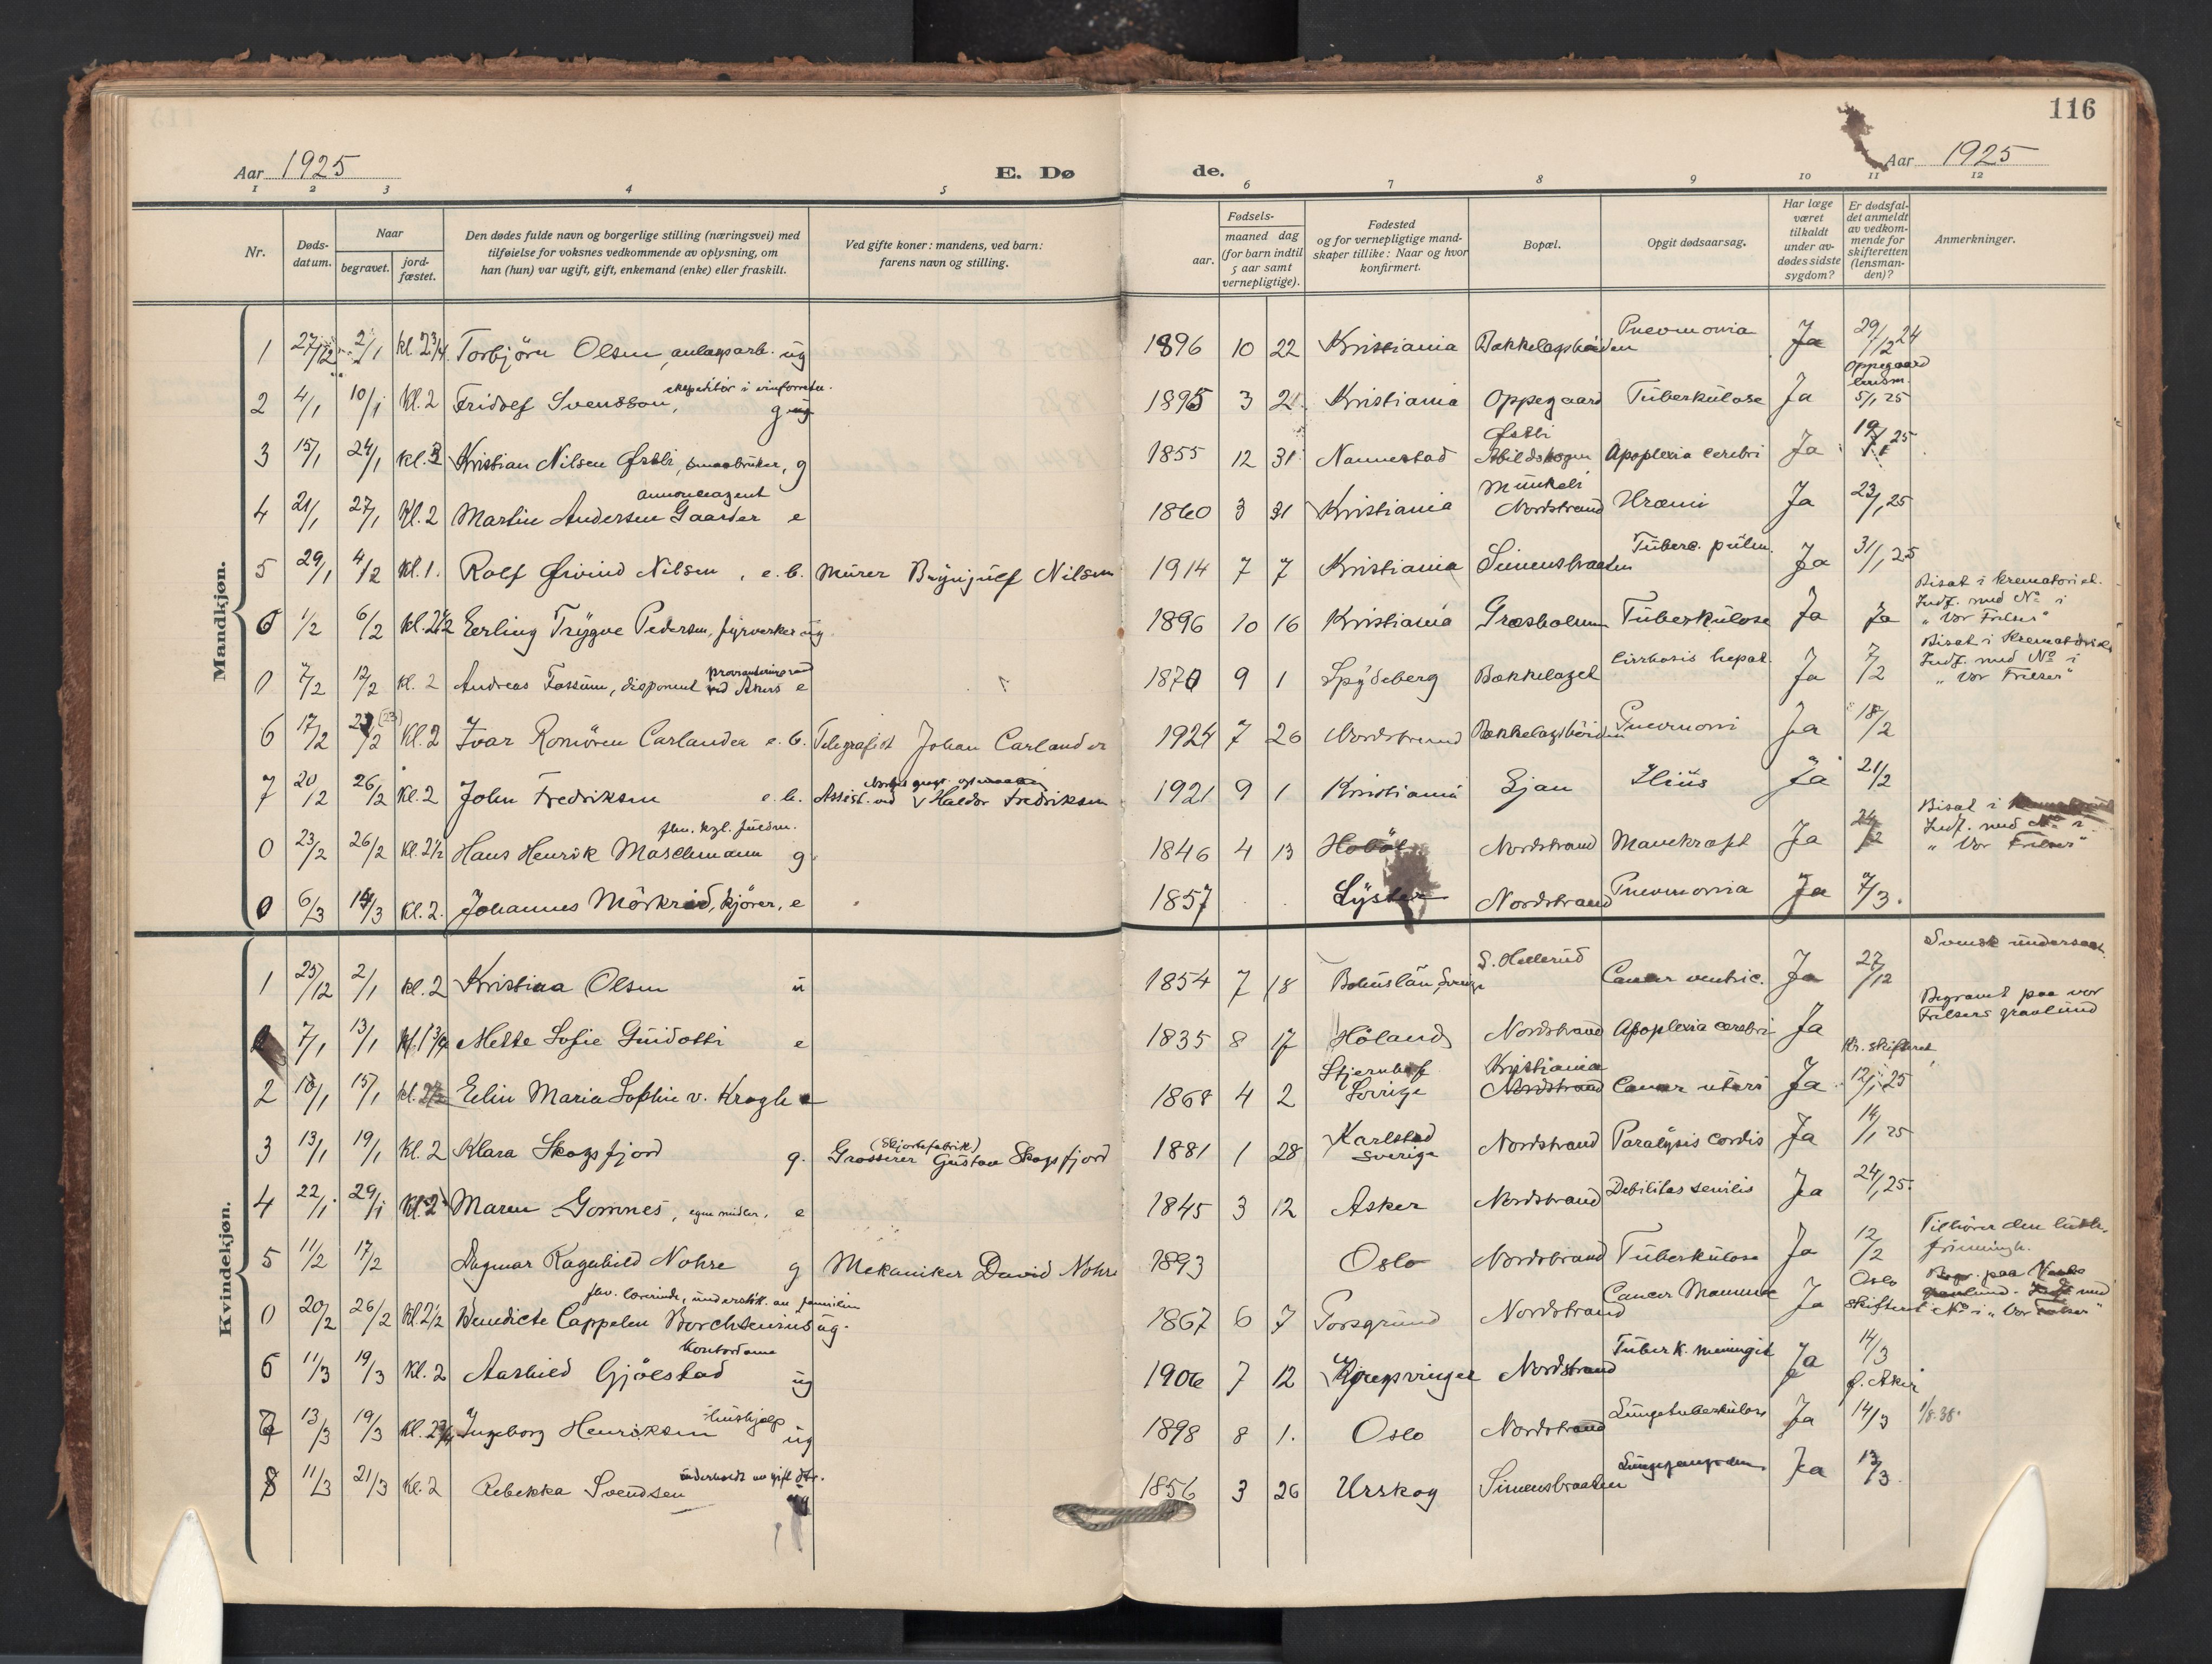 116
Aar 1925
E. Dø
de.
Aar 1925
1 2 3 4 5 6 7 8 9 10 11 12
Nr.
Døds-
datum.
Naar
begravet.
jord-
fæstet.
Den dødes fulde navn og borgerlige stilling (næringsvei) med
tilføielse for voksnes vedkommende av oplysning, om
han (hun) var ugift, gift, enkemand (enke) eller fraskilt.
Ved gifte koner: mandens, ved barn:
farens navn og stilling.
Fødsels-
aar.
maaned dag
(for barn indtil
5 aar samt
vernepligtige).
Fødested
og for vernepligtige mand-
skaper tillike: Naar og hvor
konfirmert.
Bopæl.
Opgit dødsaarsag.
Har læge
været
tilkaldt
under av-
dødes sidste
sygdom?
Er dødsfal-
det anmeldt
av vedkom-
mende for
skifteretten
(lensman-
den)?
Anmerkninger.
Mandkjøn.
1 27/12 2/1 kl. 2 3/4 Torbjörn Olsen, anlægsarb. ug 1896 10 22 Kristiania Bækkelagshöiden Pnevmonia Ja 29/12 24
2 4/1 10/1 Kl. 2 Fridolf Svensson, g 1895 3 21 Kristiania Oppegaard Tuberkulose Ja Oppegaard lensm. 5/1 25
3 15/1 24/1 Kl. Kristian Nilsen Østli, smaabruker, g 1855 12 31 Nannestad Østli Abildsøgen Apoplexia cerebri Ja 19/1 25
4 21/1 27/1 Kl. 2 Martin Andersen Gaarder annonceagent e 1860 3 31 Kristiania Munkeli Nordstrand Uræmi Ja 23/1 25
5 29/1 4/2 Kl. 1. Rolf Øivind Nilsen, e. b. Murer Brynjulf Nilsen 1914 7 7 Kristiania Simensbraaten Tuberc. pulm. Ja 31/1 25
0 1/2 6/2 Kl. 2 1/2 Erling Trygve Pedersen, fyrverker ug 1896 10 16 Kristiania Græsholmen Tuberkulose Ja Ja Bisat i krematoriet.
Indf. med No i
"Vor Frelser"
0 7/2 12/2 Kl. 2 Andreas Fossum, disponent ved Akers e 1870 9 1 Spydeberg Bækkelaget Cirrhosis hepat. Ja 7/2 Bisat i Krematoriet
Indf. med No i
"Vor Frelser"
6 17/2 23/2 Kl. 2 Ivar Romören Carlander e. b. Telegrafist Johan Carlander 1924 7 26 Nordstrand Bækkelagshöiden Pnevmoni Ja 18/2
7 20/2 26/2 Kl. 2 John Fredriksen e. b. Assist. ved Haldor Fredriksen 1921 9 1 Kristiania Ljan Ilius Ja 21/2
0 23/2 26/2 Kl. 2 1/2 Hans Henrik Maschmann g. 1846 4 13 Hobøl Nordstrand Mavekræft Ja 24/2 Bisat i
Indf. med No i
"Vor Frelser"
0 6/3 14/3 Kl. 2. Johannes Mörkrid, kjörer, e 1857 Lyster Nordstrand Pnevmonia Ja 7/3.
Kvindekjøn.
1 25/12 2/1 Kl. 2 Kristina Olsen u 1854 7 18 Bohuslän, Sverige S. Hellerud Cancer ventric. Ja 27/12 Svensk undersaat.
7/1 13/1 Kl. 1 3/4 Mette Sofie Guidotti e 1835 8 17 Höland Nordstrand Apoplexia cerebri Ja Kr. skifteret Begravet paa vor
Frelsers gravlund
2 10/1 15/1 Kl. 2 1/2 Elin Maria Sophie v. Krogh e 1868 4 2 Stjernhof Sverige Kristiania Nordstrand Cancer uteri Ja 12/1 25
3 13/1 19/1 Kl. 2 Klara Skogsfjord g. Grosserer (Skjortefabrik) Gustav Skogsfjord 1881 1 28 Karlstad Sverige Nordstrand Paralysis cordis Ja 14/1 25
4 22/1 29/1 Kl. 2 Maren Gomnes, egne midler, e 1845 3 12 Asker Nordstrand Debilitas senilis Ja 24/1 25.
5 11/2 17/2 Dagmar Ragnhild Nohre g Mekaniker David Nohre 1893 Oslo Nordstrand Tuberkulose Ja 12/2 Tilhörer den luth.
frimenigh.
0 20/2 26/2 Kl. 2 1/2 flv. lærerinde, understök. av familien
Benedicte Cappelen Borchsenius ug. 1867 6 7 Porsgrund Nordstrand Cancer Mammae Ja Oslo skifteret Begr. paa
gravlund. Indf. med
No i "Vor Frelser"
6 11/3 19/3 Kl. 2 Aashild Gjölstad Kontordame ug 1906 7 12 Kongsvinger Nordstrand Tuberk. meningit Ja 14/3 f. Aker
13/3 19/3 Kl. 2 3/4 Ingeborg Henriksen hushjelp ug 1898 8 1. Oslo Nordstrand Lungetuberkulose Ja 14/3 1/8.38.
8 11/3 21/3 Kl. 2 Rebekka Svendsen underholdt av gift dtr. 1856 3 26 Urskog Simensbraaten Ja 13/3.